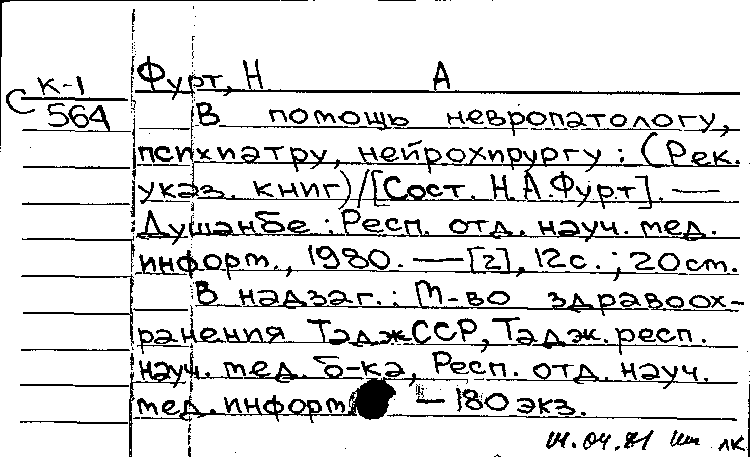 Фурт, Н А
С К-1
564
В помощь невропатологу,
психиатру, нейрохирургу: (Рек.
указ. книг)/[Сост. Н.А.Фурт]. —
Душанбе: Респ. отд. науч. мед.
информ., 1980. — [2], 12с.; 20см.
В надзаг.: М-во здравоох-
ранения ТаджССР, Тадж. респ.
науч. мед. б-ка, Респ. отд. науч.
мед. информ. — 180 экз.
04.81 лк